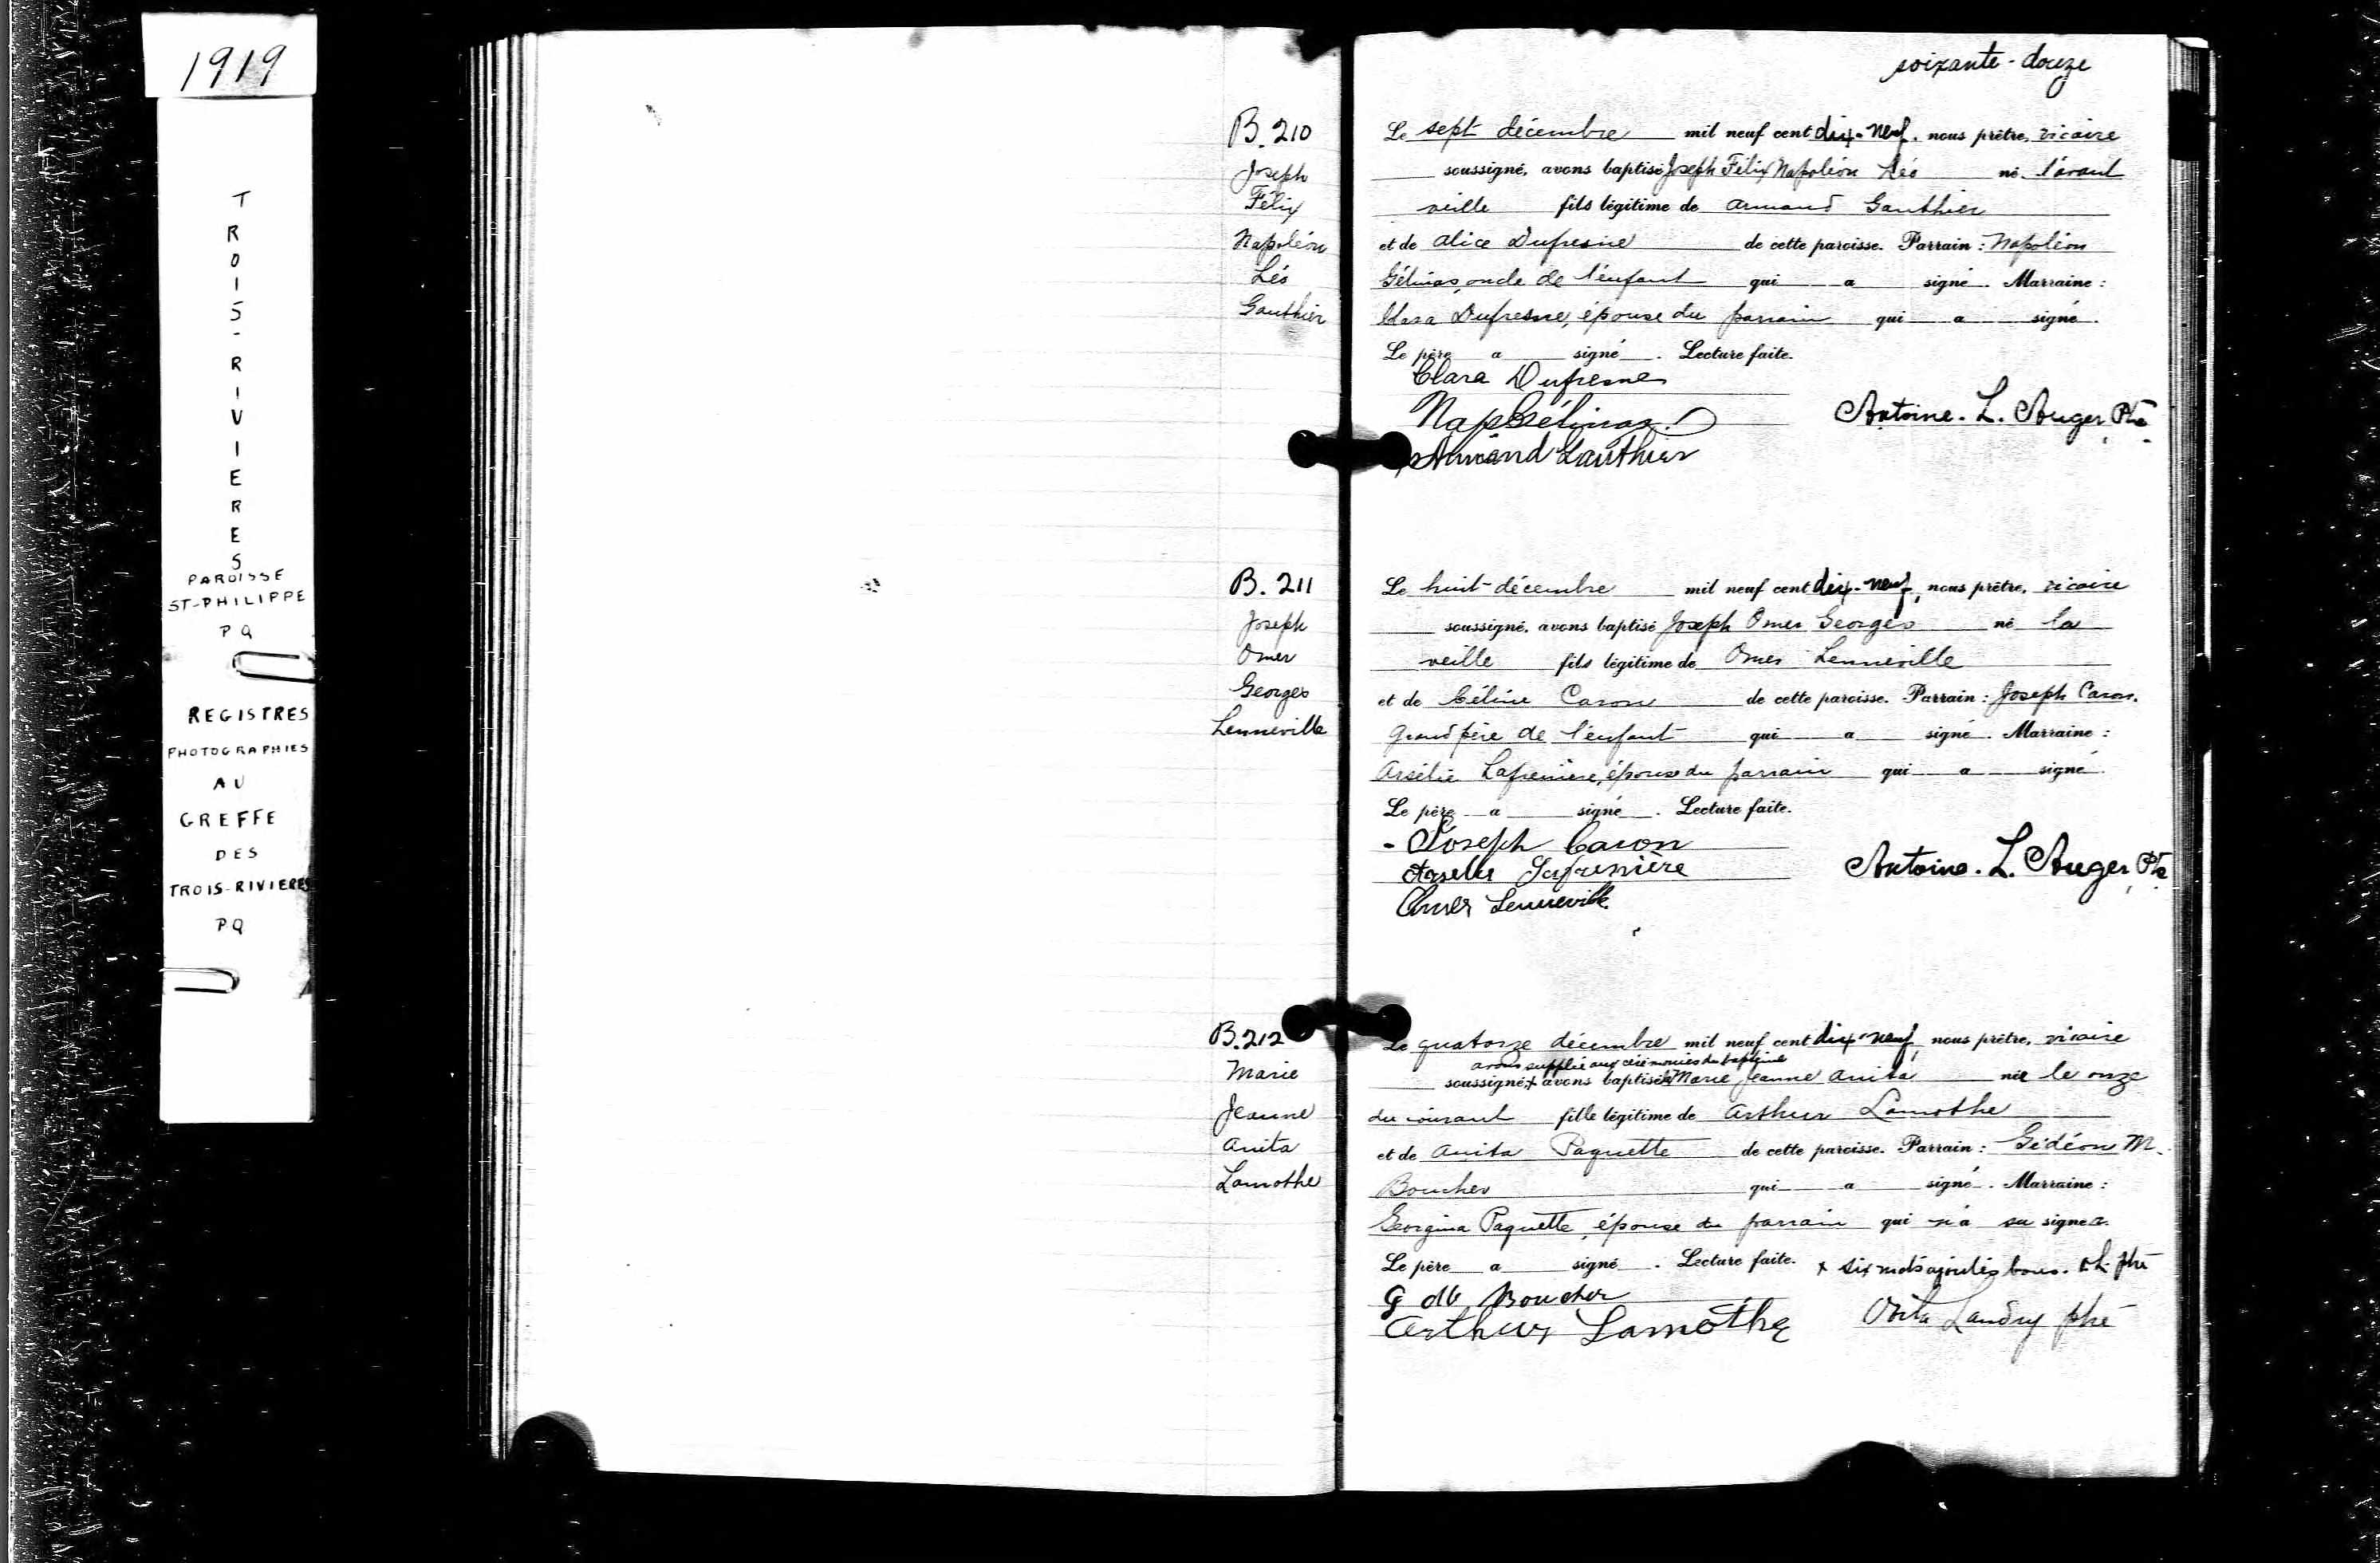 1919
TROIS-RIVIERES
PAROISSE
ST-PHILIPPE
PQ
REGISTRES
PHOTOGRAPHIES
AU
GREFFE
DES
TROIS-RIVIERES
PQ
soixante-douze
B. 210
Joseph
Félix
Napoléon
Léo
Gauthier
Le sept décembre mil neuf cent dix-neuf, nous prêtre, vicaire
soussigné, avons baptisé Joseph Félix Napoléon Léo né l'avant
veille fils légitime de Armand Gauthier
et de Alice Dufresne de cette paroisse. Parrain : Napoléon
Gélinas, oncle de l'enfant qui a signé. Marraine :
Clara Dufresne, épouse du parrain qui a signé.
Le père a signé. Lecture faite.
Clara Dufresne
Nap Gélinas
Antoine. L. Auger Ptre
Armand Gauthier
B. 211
Joseph
Omer
Georges
Lenneville
Le huit décembre mil neuf cent dix-neuf, nous prêtre, vicaire
soussigné, avons baptisé Joseph Omer Georges né la
veille fils légitime de Omer Lenneville
et de Céline Caron de cette paroisse. Parrain : Joseph Caron,
Grand père de l'enfant qui a signé. Marraine :
Arsélie Lafrenière, épouse du parrain qui a signé.
Le père a signé. Lecture faite.
- Joseph Caron
Arselie Lafrenière
Antoine. L. Auger Ptre
Omer Lenneville
B. 212
Marie
Jeanne
Anita
Lamothe
Le quatorze décembre mil neuf cent dix-neuf, nous prêtre, vicaire
avons supplié aux cérémonies du baptême
soussigné, + avons baptisé Marie Jeanne Anita née le onze
du courant fille légitime de Arthur Lamothe
et de Anita Paquette de cette paroisse. Parrain : Gédéon M.
Boucher qui a signé. Marraine :
Georgina Paquette, épouse du parrain qui n'a su signer.
Le père a signé. Lecture faite. + six mots ajoutés bons. ptre
G M Boucher
Arthur Lamothe
Landry ptre